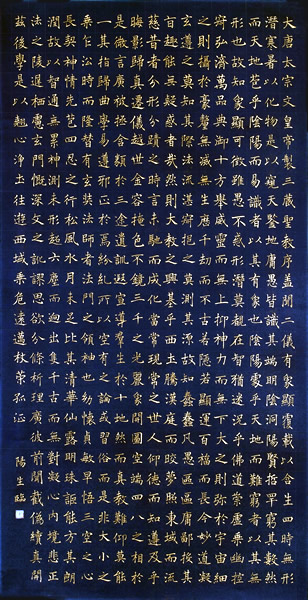 大唐太宗文皇帝製三藏聖教序蓋聞二儀有象顯覆載以含生四時無形
潛寒暑以化物是以窺天鑒地庸愚皆識其端明陰洞陽賢哲罕窮其數然
而天地苞乎陰陽而易識者以其有象也陰陽處乎天地而難窮者以其無
形也故知象顯可徵雖愚不惑形潛莫覩在智猶迷況乎佛道崇虛乘幽控
寂弘濟萬品典御十方舉威靈而無上抑神力而無下大之則彌於宇宙細
之則攝於豪釐無滅無生歷千劫而不古若隱若顯運百福而長今妙道凝
玄遵之莫知其際法流湛寂挹之莫測其源故知蠢蠢凡愚區區庸鄙投其
旨趣能無疑惑者哉然則大教之興基乎西土騰漢庭而皎夢照東域而流
慈昔者分形分跡之時言未馳而成化當常現常之世人仰德而知遵及乎
晦影歸真遷儀越世金容掩色不鏡三千之光麗象開圖空端四八之相於
是微言廣被拯含類於三途遺訓遐宣導羣生於十地然而真教難仰莫能
一其指歸曲學易遵邪正於焉紛糺所以空有之論或習俗而是非大小之
乘乍沿時而隆替有玄奘法師者法門之領袖也幼懷貞敏早悟三空之心
長契神情先苞四忍之行松風水月未足比其清華仙露明珠詎能方其朗
潤故以智通無累神測未形超六塵而迥出隻千古而無對凝心內境悲正
法之陵遲栖慮玄門慨深文之訛謬思欲分條析理廣彼前聞截偽續真開
茲後學是以翹心淨土往遊西域乘危遠邁杖策孤征 陽生臨